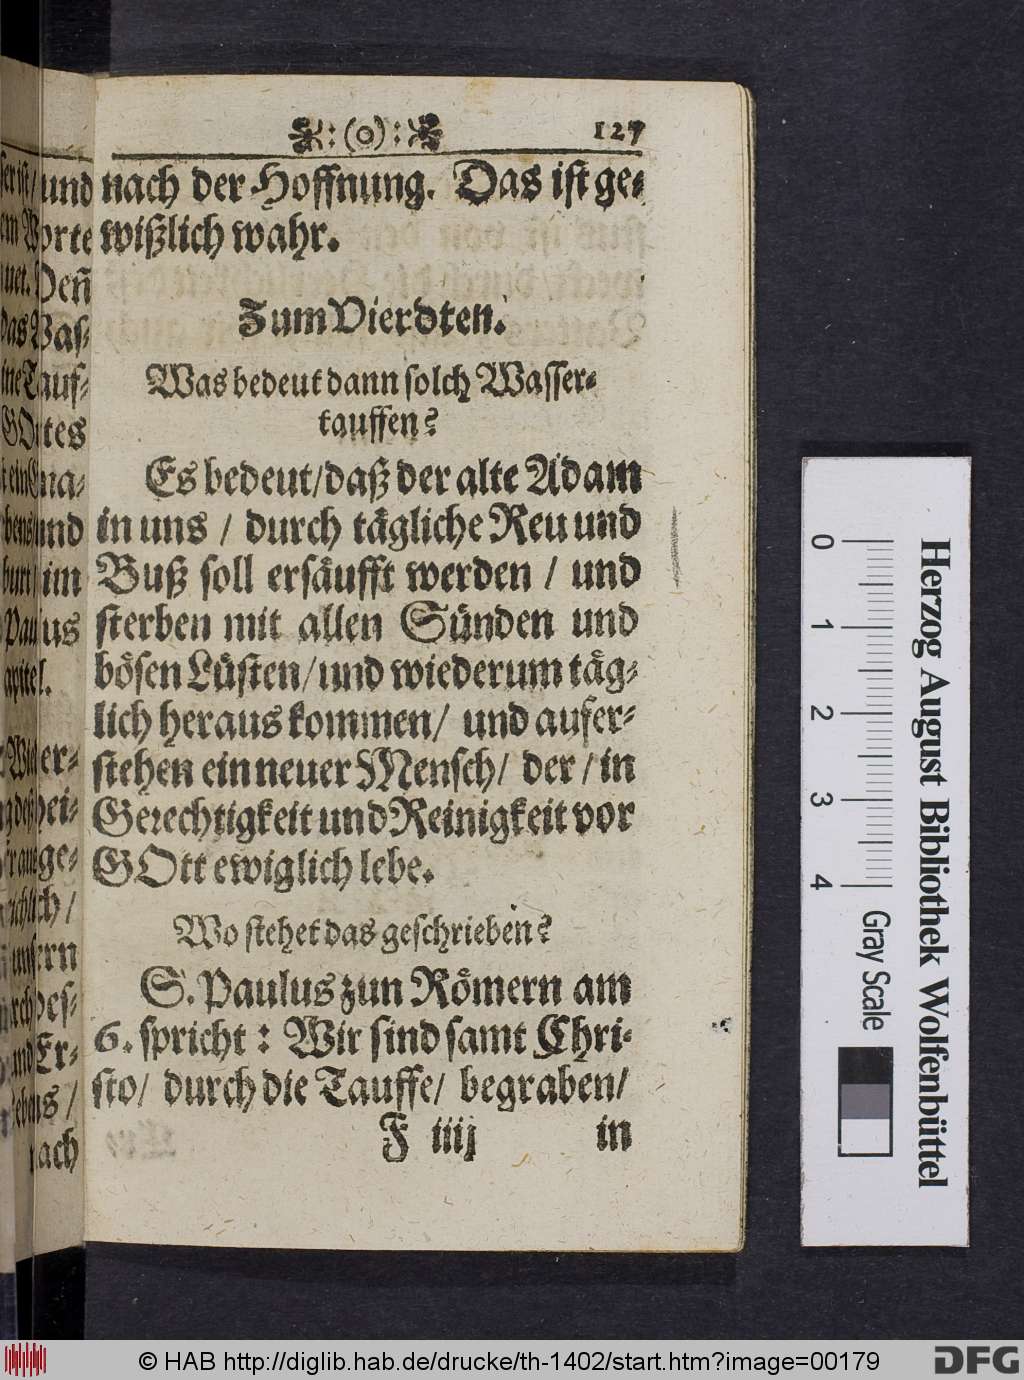 :(o): 127
nach der Hoffnung. Das ist ge-
wißlich wahr.
Zum Vierdten.
Was bedeut dann solch Wasser-
tauffen?
Es bedeut/ daß der alte Adam
in uns / durch tägliche Reu und
Buß soll ersäufft werden / und
sterben mit allen Sünden und
bösen Lüsten/ und wiederum täg-
lich heraus kommen/ und aufer-
stehen ein neuer Mensch/ der / in
Gerechtigkeit und Reinigkeit vor
GOtt ewiglich lebe.
Wo stehet das geschrieben?
S. Paulus zun Römern am
6. spricht : Wir sind samt Chri-
sto/ durch die Tauffe/ begraben/
F iiij in
0 1 2 3 4
Gray Scale
Herzog August Bibliothek Wolfenbüttel
© HAB http://diglib.hab.de/drucke/th-1402/start.htm?image=00179
DFG